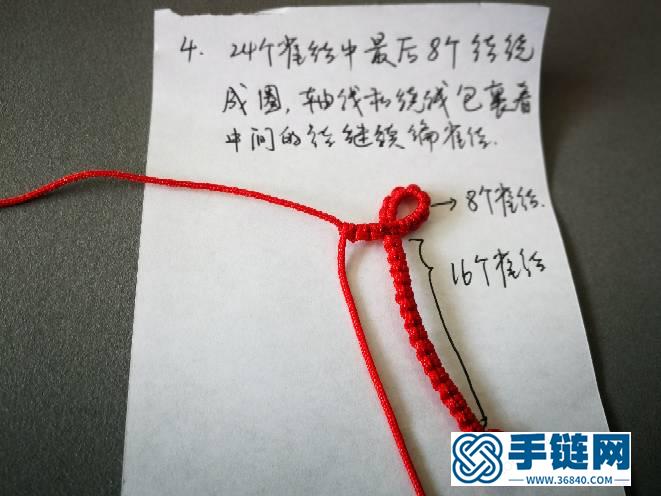 4. 24个雀结中最后8个结绕
成圈，轴线和绕线包裹着
中间的结继续编雀结.
→8个雀结.
16个雀结
手链网
www.36840.com